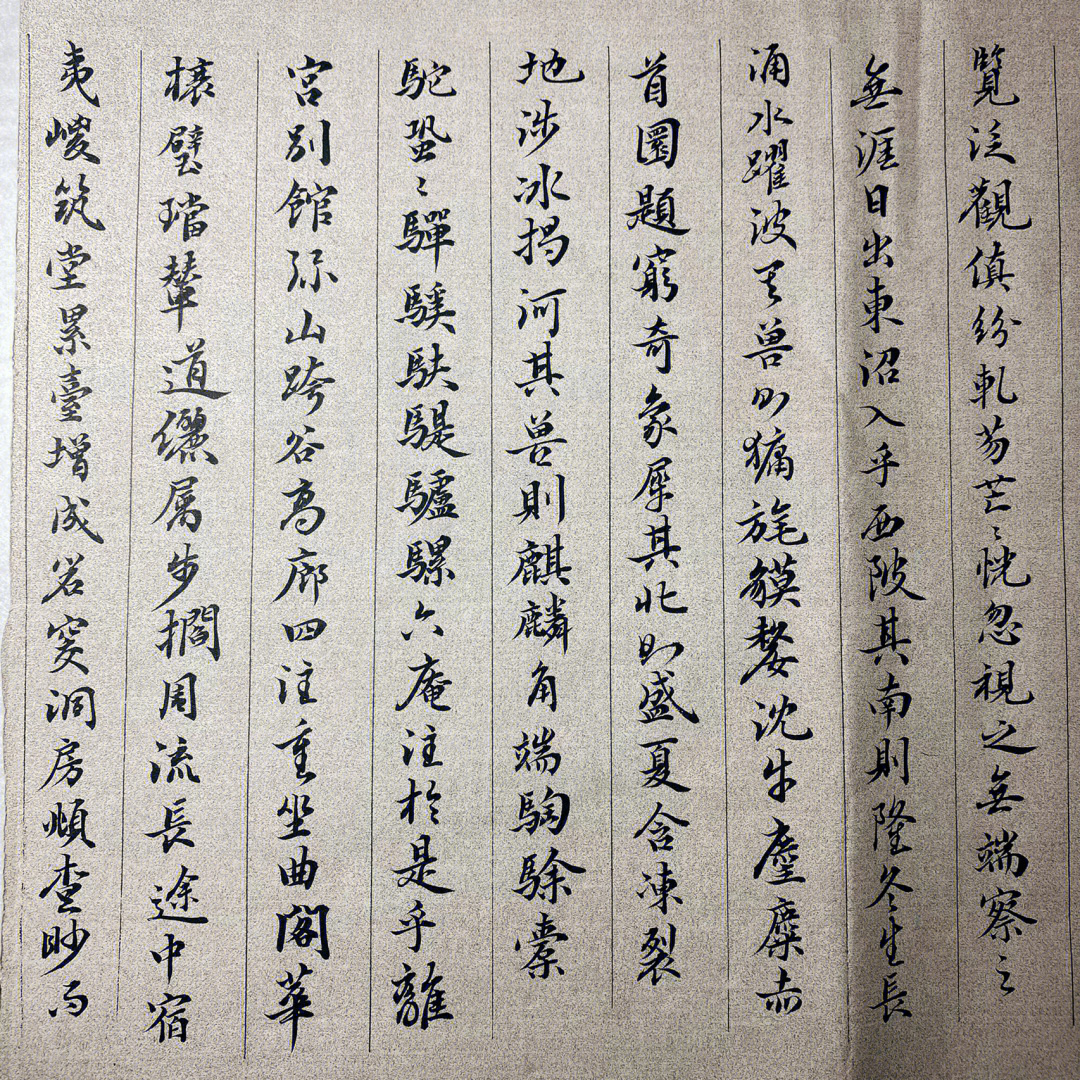 覽泛觀縝紛軋芴芒〻恍忽視之無端察之
無涯日出東沼入乎西陂其南則隆冬生長
涌水躍波其兽則㺎旄貘嫠沈牛麈麋赤
首圜題窮奇象犀其北則盛夏含凍裂
地涉冰揭河其兽則麒麟角端騊駼橐
駝蛩〻驒騱駃騠驢騾六庵注於是乎離
宮別館弥山跨谷高廊四注重坐曲閣華
榱璧璫輦道纚属步擱周流長途中宿
夷嵕筑堂累臺增成岩窔洞房頫杳眇而